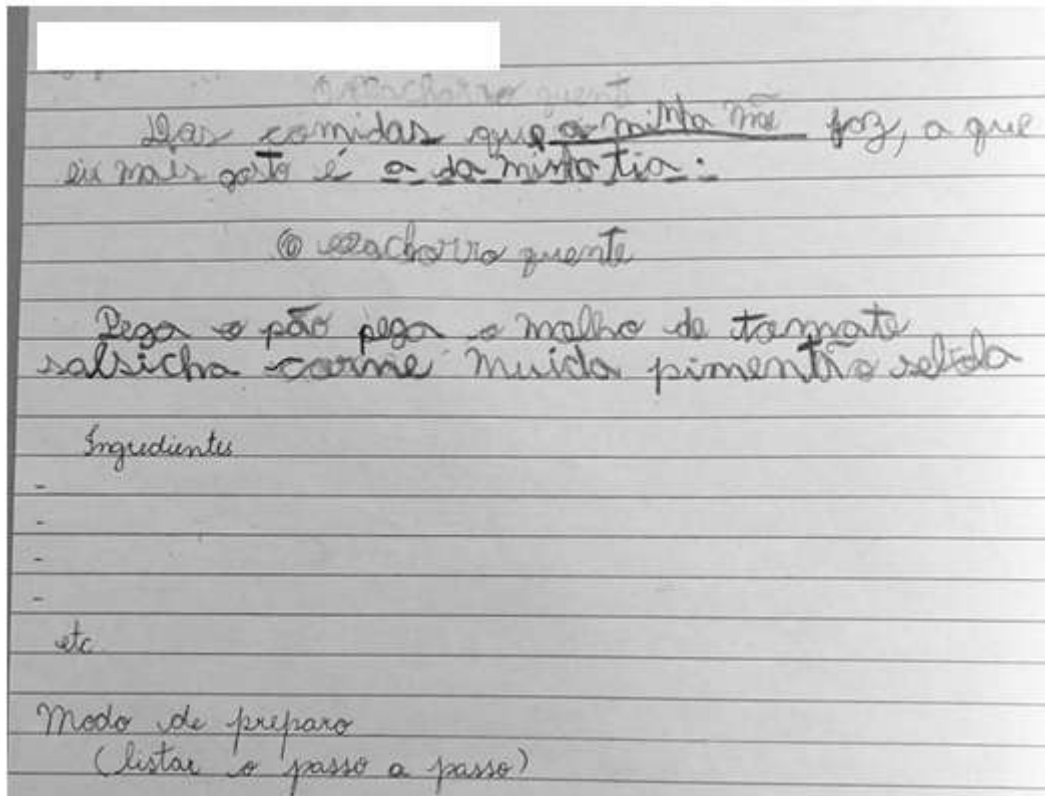 cachorro quent
Das comidas que a minha mãe faz, a que
eu mais gosto é a da minha tia:
O cachorro quente
Pega o pão pega o molho de tomate
salsicha carne muida pimentão sebola
Ingredientes
-
-
-
-
etc
Modo de preparo
(listar o passo a passo)